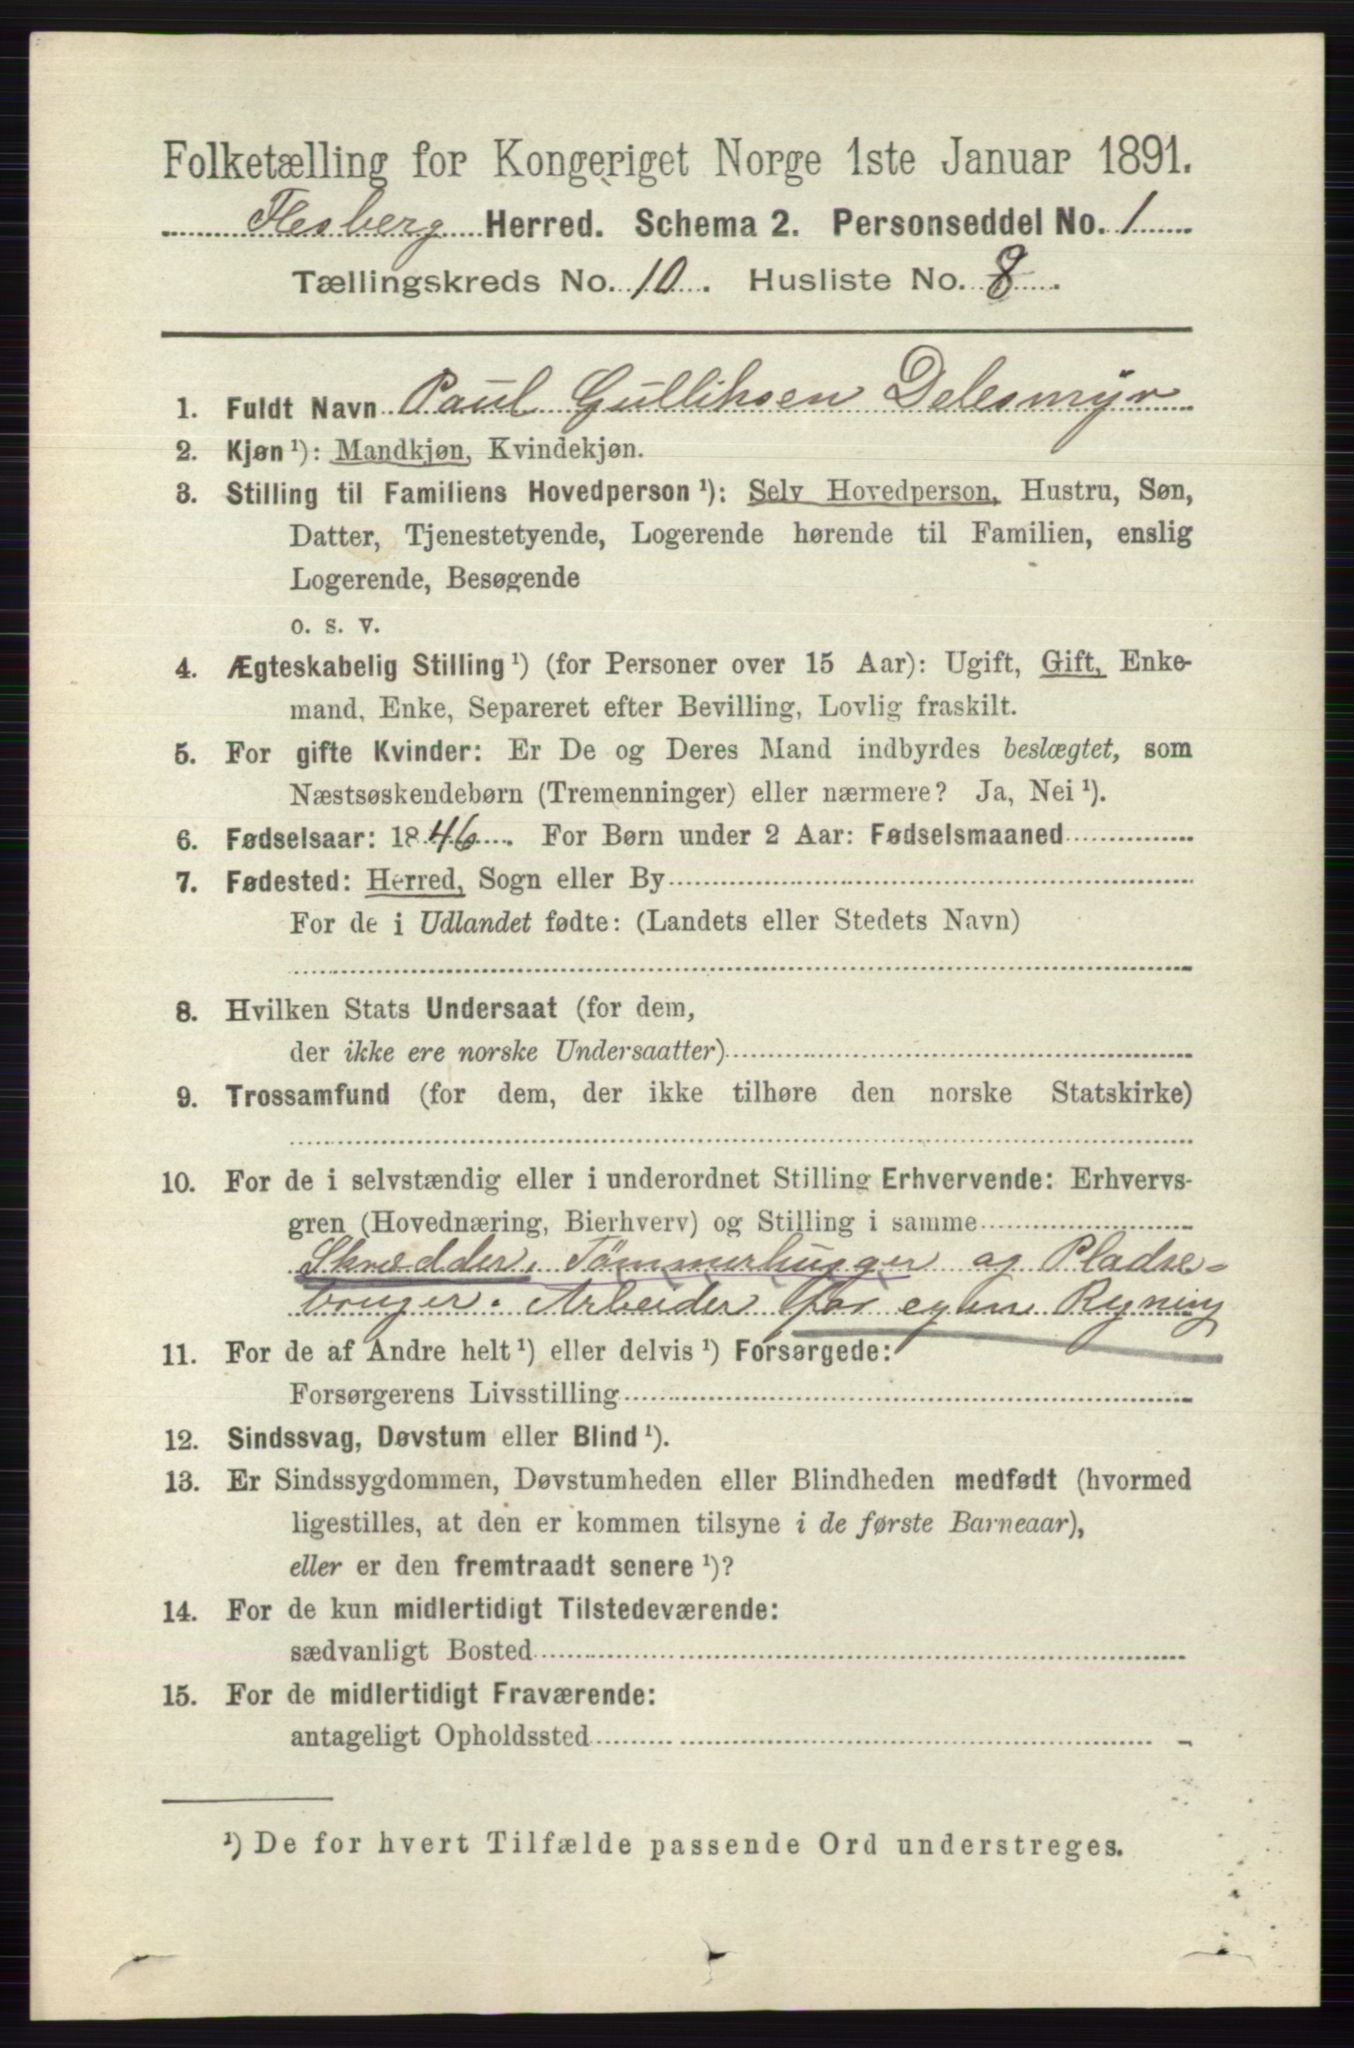 Folketælling for Kongeriget Norge 1ste Januar 1891.
Flesberg Herred. Schema 2. Personseddel No. 1
Tællingskreds No. 10. Husliste No. 8.
1. Fuldt Navn Paul Gulliksen Delesmyr
2. Kjøn ¹): Mandkjøn, Kvindekjøn.
3. Stilling til Familiens Hovedperson ¹): Selv Hovedperson, Hustru, Søn,
Datter, Tjenestetyende, Logerende hørende til Familien, enslig
Logerende, Besøgende
o. s. v.
4. Ægteskabelig Stilling ¹) (for Personer over 15 Aar): Ugift, Gift, Enke-
mand, Enke, Separeret efter Bevilling, Lovlig fraskilt.
5. For gifte Kvinder: Er De og Deres Mand indbyrdes beslægtet, som
Næstsøskendebørn (Tremenninger) eller nærmere? Ja, Nei ¹).
6. Fødselsaar: 1846. For Børn under 2 Aar: Fødselsmaaned
7. Fødested: Herred, Sogn eller By
For de i Udlandet fødte: (Landets eller Stedets Navn)
8. Hvilken Stats Undersaat (for dem,
der ikke ere norske Undersaatter)
9. Trossamfund (for dem, der ikke tilhøre den norske Statskirke)
10. For de i selvstændig eller i underordnet Stilling Erhvervende: Erhvervs-
gren (Hovednæring, Bierhverv) og Stilling i samme
Skrædder, Tømmerhugger og Pladse-
bruger. Arbeider for egen Regning
11. For de af Andre helt ¹) eller delvis ¹) Forsørgede:
Forsørgerens Livsstilling
12. Sindssvag, Døvstum eller Blind ¹).
13. Er Sindssygdommen, Døvstumheden eller Blindheden medfødt (hvormed
ligestilles, at den er kommen tilsyne i de første Barneaar),
eller er den fremtraadt senere ¹)?
14. For de kun midlertidigt Tilstedeværende:
sædvanligt Bosted
15. For de midlertidigt Fraværende:
antageligt Opholdssted
¹) De for hvert Tilfælde passende Ord understreges.